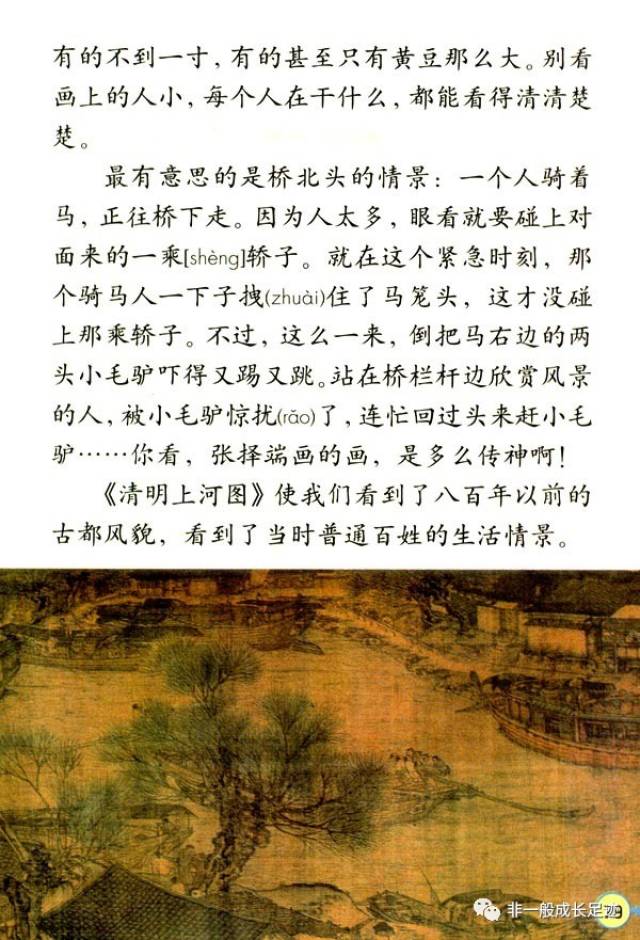 有的不到一寸，有的甚至只有黄豆那么大。别看
画上的人小，每个人在干什么，都能看得清清楚
楚。
最有意思的是桥北头的情景：一个人骑着
马，正往桥下走。因为人太多，眼看就要碰上对
面来的一乘[shèng]轿子。就在这个紧急时刻，那
个骑马人一下子拽(zhuài)住了马笼头，这才没碰
上那乘轿子。不过，这么一来，倒把马右边的两
头小毛驴吓得又踢又跳。站在桥栏杆边欣赏风景
的人，被小毛驴惊扰(rǎo)了，连忙回过头来赶小毛
驴……你看，张择端画的画，是多么传神啊！
《清明上河图》使我们看到了八百年以前的
古都风貌，看到了当时普通百姓的生活情景。
非一般成长足迹